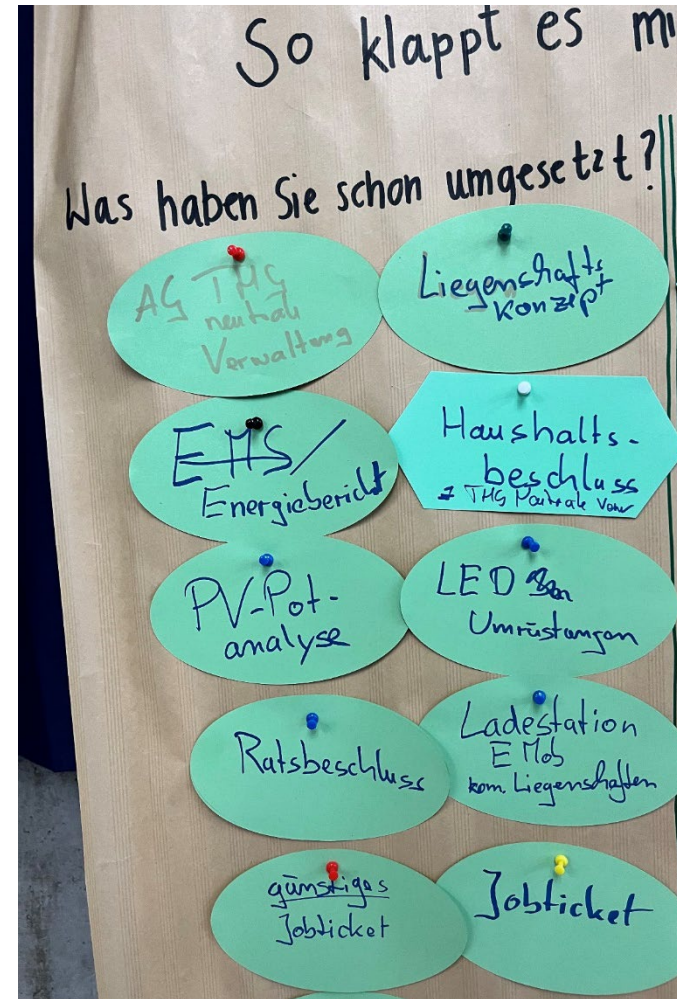 So klappt es
Was haben Sie schon umgesetzt?
AG THG
neutrale
Verwaltung
Liegenschafts
Konzept
EMS/
Energiebericht
Haushalts-
beschluss
THG Neutrale
PV-Pot-
analyse
LED
Umrüstungen
Ratsbeschluss
Ladestation
E Mob
kom. Liegenschaften
günstiges
Jobticket
Jobticket